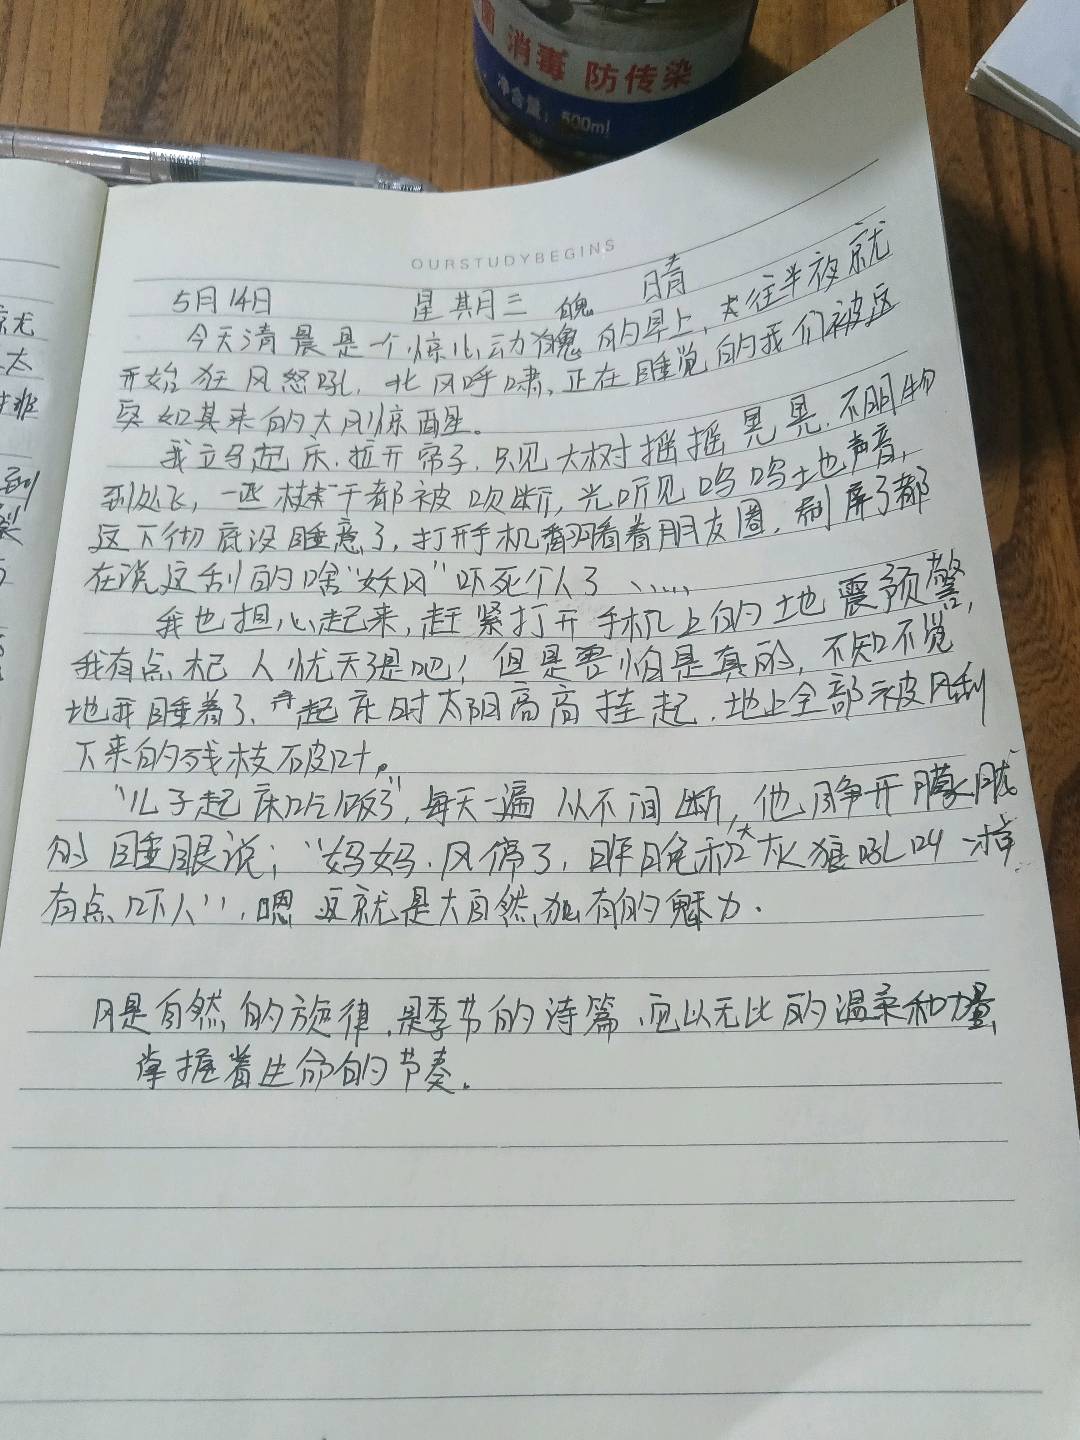 消毒 防传染
净含量：500ml
OURSTUDYBEGINS
5月14日 星期三 魄 晴
今天清晨是一个惊心动魄的早上，大往半夜就
开始狂风怒吼，北风呼啸，正在睡觉的我们被这
突如其来的大风惊醒。
我立马起床，拉开帘子，只见大树摇摇晃晃，不明物
到处飞，一些树干都被吹断，光听见呜呜地声音，
这下彻底没睡意了，打开手机翻看着朋友圈，刷屏了都
在说这刮的啥“妖风”吓死个人了、……
我也担心起来，赶紧打开手机上的地震预警，
我有点杞人忧天了是吧！但是害怕是真的，不知不觉
地我睡着了、再起床时太阳高高挂起，地上全部被风刮
下来的残枝破叶。
“儿子起床吃饭了”，每天一遍从不间断，他睁开朦胧
的睡眼说；“妈妈，风停了，昨晚和大灰狼吼叫一样
有点吓人”，嗯这就是大自然独有的魅力．
风是自然的旋律，是季节的诗篇，它以无比的温柔和力量，
掌握着生命的节奏．